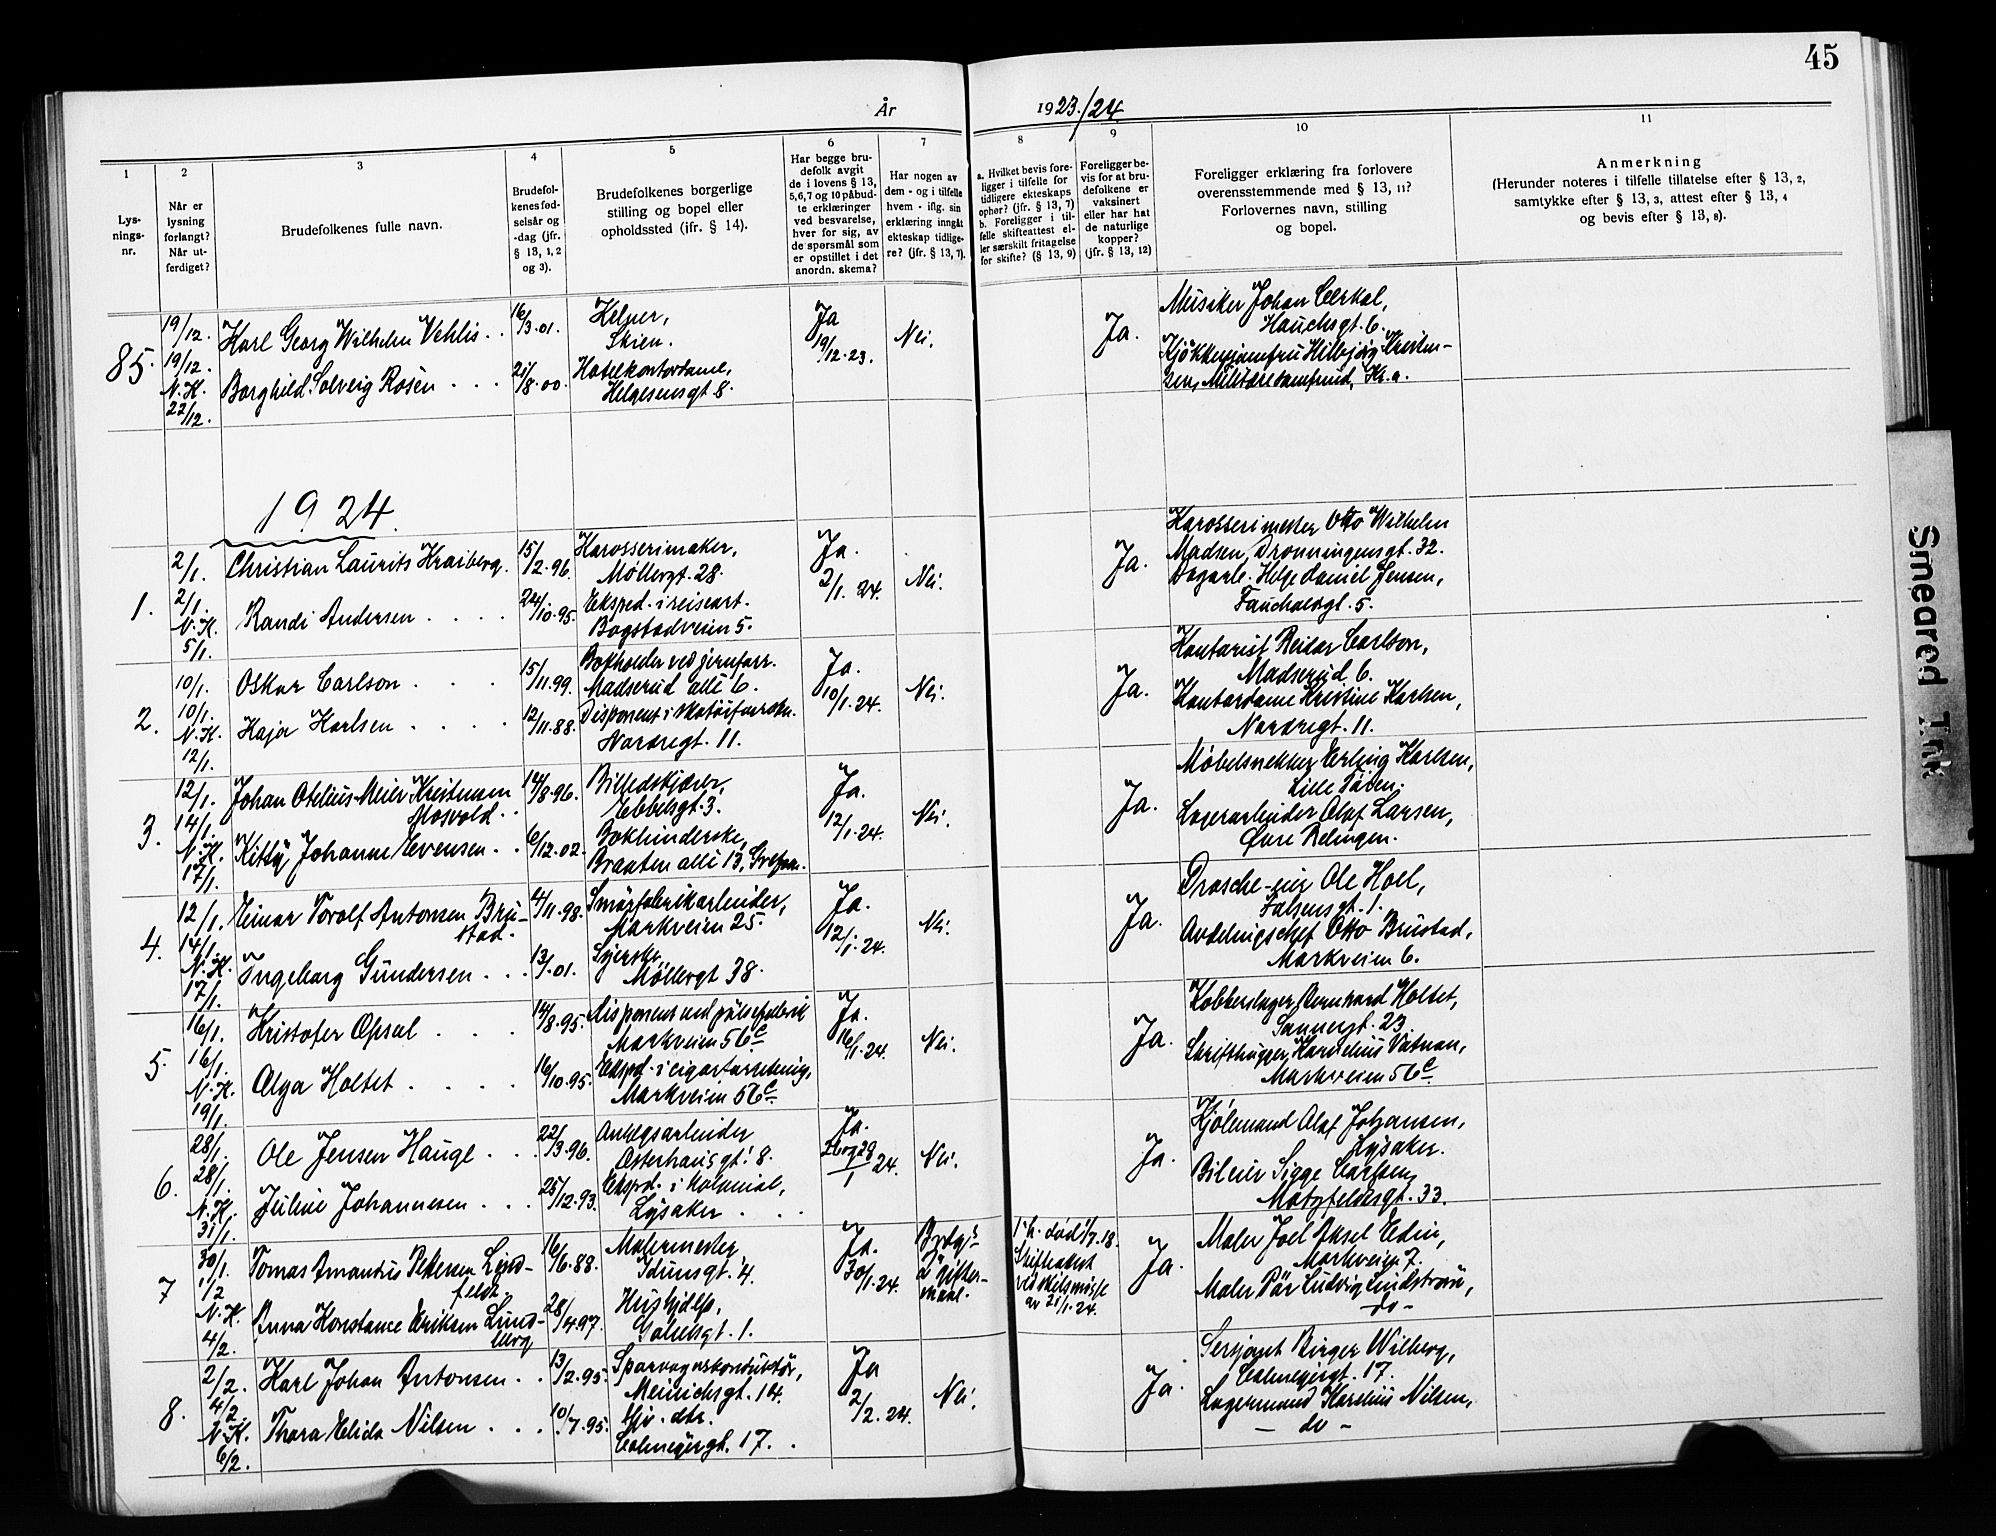 45
År 1923/24
1 2 3 4 5 6 7 8 9 10 11
Lys-
nings-
nr.
Når er
lysning
forlangt?
Når ut-
ferdiget?
Brudefolkenes fulle navn.
Brudefol-
kenes fød-
selsår og
-dag (jfr.
§ 13, 1, 2
og 3).
Brudefolkenes borgerlige
stilling og bopel eller
opholdssted (jfr. § 14).
Har begge bru-
defolk avgit
de i lovens § 13,
5,6,7 og 10 påbud-
te erklæringer
ved besvarelse,
hver for sig, av
de spørsmål som
er opstillet i det
anordn. skema?
Har nogen av
dem - og i tilfelle
hvem - iflg. sin
erklæring inngåt
ekteskap tidlige-
re? (jfr. § 13, 7).
a. Hvilket bevis fore-
ligger i tilfelle for
tidligere ekteskaps
ophør? (jfr. § 13, 7)
b. Foreligger i til-
felle skifteattest el-
ler særskilt fritagelse
for skifte? (§ 13, 9)
Foreligger be-
vis for at bru-
defolkene er
vaksinert
eller har hat
de naturlige
kopper?
(jfr. § 13, 12)
Foreligger erklæring fra forlovere
overensstemmende med § 13, 11?
Forlovernes navn, stilling
og bopel.
Anmerkning
(Herunder noteres i tilfelle tillatelse efter § 13, 2,
samtykke efter § 13, 3, attest efter § 13, 4
og bevis efter § 13, 8).
85.
19/12.
19/12.
N.H.
22/12.
Karl Georg Wilhelm Vehlis.
Borghild Solveig Rosèn
16/3.01.
21/8.00.
Kelner,
Skien.
Hotelkontordame,
Helgesensgt 8.
Ja
19/12.23.
Nei.
Ja.
Musiker Johan
Hauchsgt. 6.
Kjøkkenjomfru Hilbjørg Kristen-
sen, Militære samfund, Kr.a.
1924.
1.
2/1.
2/1.
N.H.
5/1.
Christian Laurits Kraiberg.
Randi Andersen
15/2.96.
24/10.95.
Karosserimaker,
Møllergt. 28.
Eksped. i reiseart.
Bogstadveien 5.
Ja.
2/1.24.
Nei.
Ja.
Karosserimester Otto Wilhelm
Madsen, Dronningensgt. 32.
Dagarb. Helge Daniel Jensen,
Fauchaldsgt. 5.
2.
10/1.
10/1.
N.H.
12/1.
Oskar Carlson
Kaja Karlsen
15/11.99.
12/11.88.
Bokholder ved jernforr.
Madserud allè 6.
Disponent i
Nordregt. 11.
Ja.
10/1.24.
Nei.
Ja.
Kontorist Reidar Carlson,
Madserud 6.
Kontordame Kristine Karlsen,
Nordregt. 11.
3.
12/1.
14/1.
N.H.
17/1.
Johan Otelius Meier Kristensen
Mosvold.
Kitty Johanne Evensen
14/8.96.
6/12.02.
Billedskjærer,
Ebbelsgt. 3.
Bokbinderske,
Braaten allè 13, Grefsen.
Ja.
12/1.24.
Nei.
Ja.
Møbelsnekker Erling Karlsen,
Lille Tøien.
Lagerarbeider Olaf Larsen,
Øvre Relingen.
4.
12/1.
14/1.
N.H.
17/1.
Einar Torolf Antonsen Bru-
stad.
Ingeborg Gundersen
4/11.98.
13/1.01.
Smørfabrikarbeider,
Markveien 25.
Syerske,
Møllergt 38.
Ja.
12/1.24.
Nei.
Ja.
Drosche-eier Ole Hoel,
Falsensgt. 1.
Avdelingschef Otto Brustad,
Markveien 6.
5.
16/1.
16/1.
N.H.
19/1.
Kristofer Opsal
Olga Holtet
14/8.95.
16/10.95.
Disponent ved pølsefabrik
Markveien 56c
Eksped. i cigarforretning,
Markveien 56c
Ja.
16/1.24.
Nei.
Ja.
Kobberslager Bernhard Holtet,
Sannergt. 23
Skrifthugger Kornelius Vatnan,
Markveien 56c
6.
28/1.
28/1.
N.H.
31/1.
Ole Jensen Hauge
Juline Johannesen
22/3.96.
25/12.93.
Anlegsarbeider
Osterhausgt. 8.
Eksped. i kolonial,
Lysaker
Ja.
26 og 28/1 24.
Nei.
Ja.
Kjølemand Olaf Johansen,
Lysaker.
Bileier Sigge Carlsen,
Motzfeldtsgt. 33.
7
30/1.
1/2
N.H.
4/2.
Tomas Amandus Petersen Lind-
feldt.
Anna Konstance Eriksen Lund-
berg
16/6.88.
28/4.97.
Malermester,
Idunsgt. 4.
Hushjelp,
Gabelsgt. 1.
Ja.
30/1.24.
2 gifter-
maal.
1ste h. død 1/7.18.
Skifteattest
av 21/1.24.
Ja.
Maler Joel Aksel Edin,
Markveien 7.
Maler Pär Ludvig Lindstrøm,
-do-
8.
2/2.
4/2.
N.H.
6/2.
Karl Johan Antonsen
Thora Elida Nilsen
13/2.95.
10/7.95.
Sporvognskonduktør,
Meinichsgt. 14.
Hjv. dtr.
Colmejergt. 17.
Ja
2/2.24.
Nei.
Ja.
Sersjant Birger Wilberg,
Colmejergt. 17.
Lagermand Karelius Nilsen,
- do -
Smeared Ink